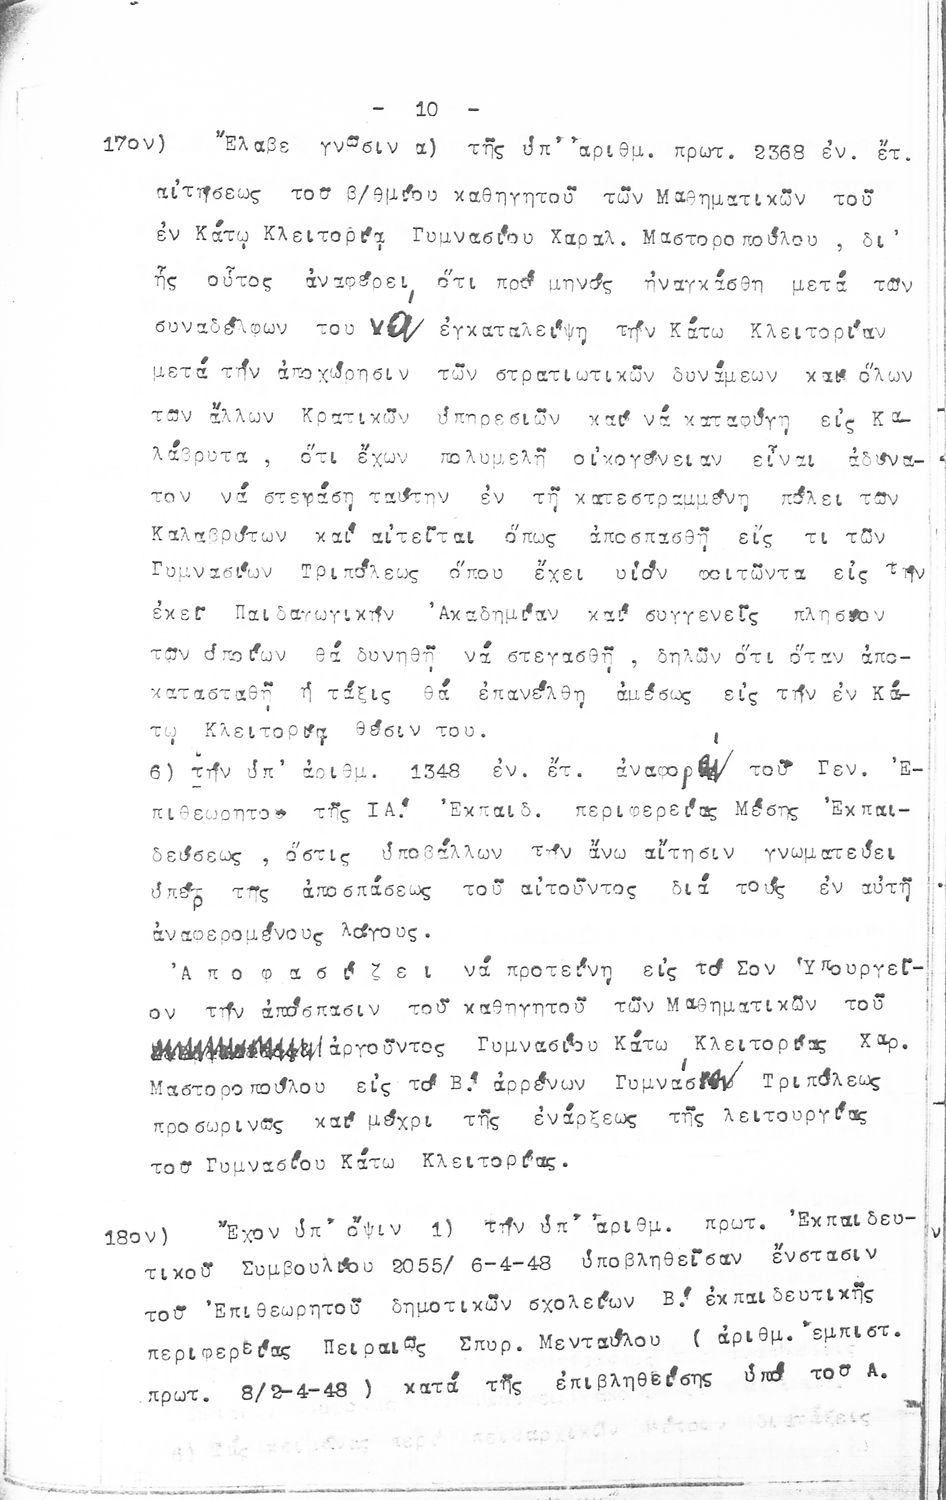 - 10 -
17ον) Ἔλαβε γνῶσιν α) τῆς ὑπ' ἀριθμ. πρωτ. 2368 ἐν. ἔτ.
αἰτήσεως τοῦ β/θμίου καθηγητοῦ τῶν Μαθηματικῶν τοῦ
ἐν Κάτῳ Κλειτορίᾳ Γυμνασίου Χαραλ. Μαστοροπούλου , δι'
ἧς οὗτος ἀναφέρει, ὅτι πρό μηνός ἠναγκάσθη μετά τῶν
συναδέλφων του νά ἐγκαταλείψη τήν Κάτω Κλειτορίαν
μετά τήν ἀποχώρησιν τῶν στρατιωτικῶν δυνάμεων καί ὅλων
τῶν ἄλλων Κρατικῶν ὑπηρεσιῶν καί νά καταφύγη εἰς Κα-
λάβρυτα , ὅτι ἔχων πολυμελῆ οἰκογένειαν εἶναι ἀδύνα-
τον νά στεγάση ταύτην ἐν τῆ κατεστραμμένη πόλει τῶν
Καλαβρύτων καί αἰτεῖται ὅπως ἀποσπασθῆ εἴς τι τῶν
Γυμνασίων Τριπόλεως ὅπου ἔχει υἱόν φοιτῶντα εἰς τήν
ἐκεῖ Παιδαγωγικήν Ἀκαδημίαν καί συγγενεῖς πλησίον
τῶν ὁποίων θά δυνηθῆ νά στεγασθῆ , δηλῶν ὅτι ὅταν ἀπο-
κατασταθῆ ἡ τάξις θά ἐπανέλθη ἀμέσως εἰς τήν ἐν Κά-
τῳ Κλειτορίᾳ θέσιν του.
6) τήν ὑπ' ἀριθμ. 1348 ἐν. ἔτ. ἀναφοράν τοῦ Γεν. Ἐ-
πιθεωρητοῦ τῆς ΙΑ! Ἐκπαιδ. περιφερείας Μέσης Ἐκπαι-
δεύσεως , ὅστις ὑποβάλλων τήν ἄνω αἴτησιν γνωματεύει
ὑπέρ τῆς ἀποσπάσεως τοῦ αἰτοῦντος διά τούς ἐν αὐτῆ
ἀναφερομένους λόγους.
Ἀ π ο φ α σ ί ζ ε ι νά προτείνη εἰς τό Σον Ὑπουργεῖ-
ον τήν ἀπόσπασιν τοῦ καθηγητοῦ τῶν Μαθηματικῶν τοῦ
ἀργοῦντος Γυμνασίου Κάτω Κλειτορίας Χαρ.
Μαστοροπούλου εἰς τό Β! ἀρρένων Γυμνάσιον Τριπόλεως
προσωρινῶς καί μέχρι τῆς ἐνάρξεως τῆς λειτουργίας
τοῦ Γυμνασίου Κάτω Κλειτορίας.
18ον) Ἔχον ὑπ' ὄψιν 1) τήν ὑπ' ἀριθμ. πρωτ. Ἐκπαιδευ-
τικοῦ Συμβουλίου 2055/ 6-4-48 ὑποβληθεῖσαν ἔνστασιν
τοῦ Ἐπιθεωρητοῦ δημοτικῶν σχολείων Β! ἐκπαιδευτικῆς
περιφερείας Πειραιῶς Σπυρ. Μενταύλου ( ἀριθμ. ἐμπιστ.
πρωτ. 8/2-4-48 ) κατά τῆς ἐπιβληθείσης ὑπό τοῦ Α.